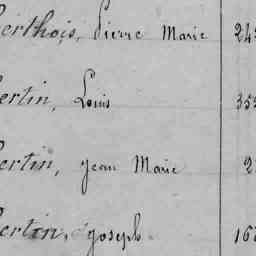 erthois, Pierre Marie 24
ertin, Louis 35
ertin, Jean Marie 2
ertin, Joseph 16